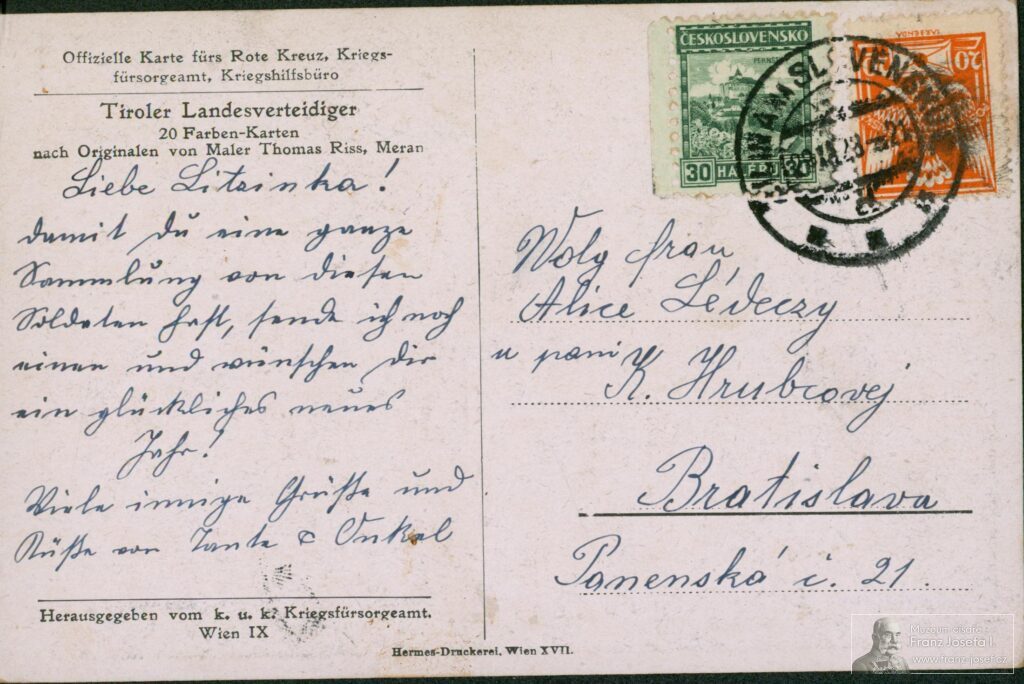 Offizielle Karte fürs Rote Kreuz, Kriegs-
fürsorgeamt, Kriegshilfsbüro
Tiroler Landesverteidiger
20 Farben-Karten
nach Originalen von Maler Thomas Riss, Meran
Liebe Litzinka!
damit du eine ganze
Sammlung von diesen
Soldaten hast, sende ich noch
einen und wünschen dir
ein glückliches neues
Jahr!
Viele innige Grüße und
Küße von Tante & Onkel
Herausgegeben vom k. u. k. Kriegsfürsorgeamt.
Wien IX
Hermes-Druckerei, Wien XVII.
ČESKOSLOVENSKO
30
20
Frau
Alice Lédeczy
u pani
K. Hrubcovej
Bratislava
Panenská č. 21.
Muzeum císaře
Franz Josefa I.
www.franz-josef.cz